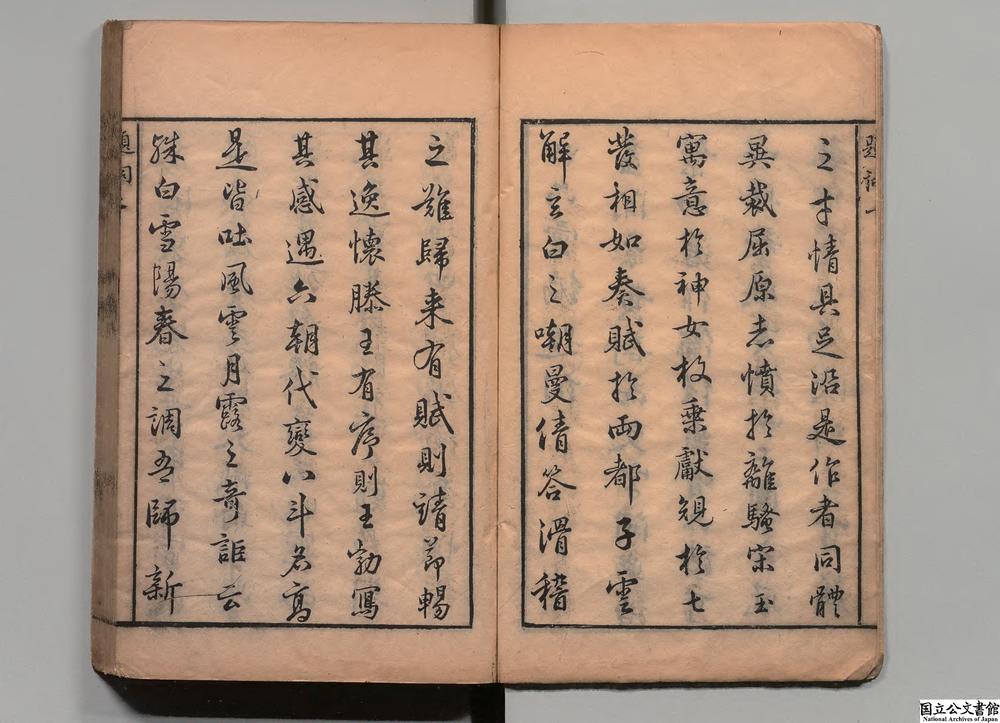 題詞一
之才情具足沿是作者同體
異裁屈原志憤於離騷宋玉
寓意於神女枚乘獻規於七
發相如奏賦於兩都子雲
解玄白之嘲曼倩答滑稽
之難歸来有賦則靖節暢
其逸懷滕王有序則王勃寫
其感遇六朝代變八斗名高
是皆吐風雲月露之奇詎云
殊白雪陽春之調吾師新
題詞
国立公文書館
National Archives of Japan